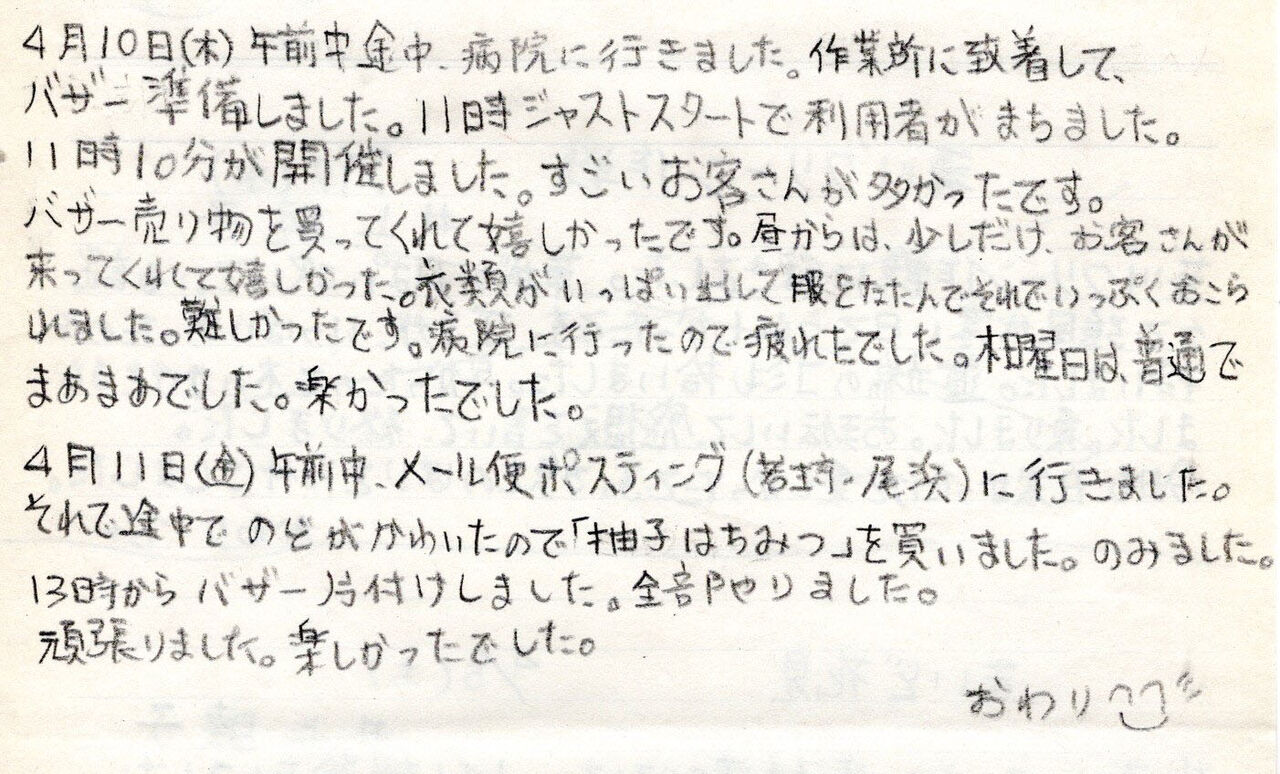 4月10日(木)午前中途中、病院に行きました。作業所に致着して、
バザー準備しました。11時ジャストスタートで利用者がまちました。
11時10分が開催しました。すごいお客さんが多かったです。
バザー売り物を買ってくれて嬉しかったです。昼からは、少しだけ、お客さんが
来ってくれて嬉しかった。衣類がいっぱい出して服をたたんでそれでいっぷくおこら
れました。難しかったです。病院に行ったので疲れたでした。木曜日は、普通で
まあまあでした。楽かったでした。
4月11日(金)午前中、メール便ポスティング(若王寺・尾浜)に行きました。
それで途中でのどがかわいたので「柚子はちみつ」を買いました。のみました。
13時からバザー片付けしました。全部やりました。
頑張りました。楽しかったでした。
おわり